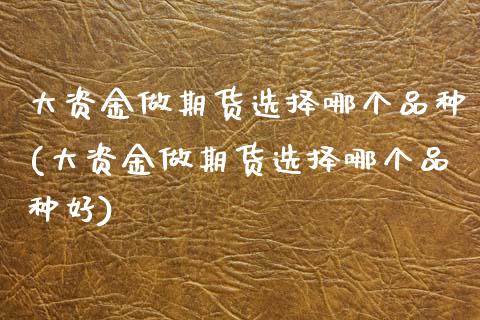 大资金做期货选择哪个品种
(大资金做期货选择哪个品
种好)